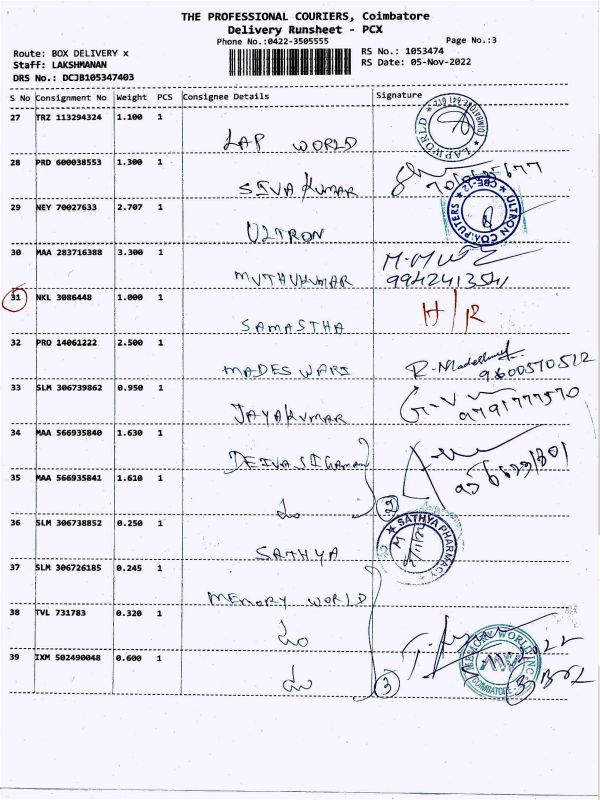 THE PROFESSIONAL COURIERS, Coimbatore
Delivery Runsheet - PCX
Phone No.:0422-3505555
Page No.:3
Route: BOX DELIVERY x
RS No.: 1053474
Staff: LAKSHMANAN
RS Date: 05-Nov-2022
DRS No.: DCJB105347403
S No Consignment No Weight PCS Consignee Details Signature
27 TRZ 113294324 1.100 1
LAP WORLD
LAPWORLD
28 PRD 600038553 1.300 1
SIVA KUMAR
29 NEY 70027633 2.707 1
ULTRON
ULTRON COMPUTERS CBE-12
30 MAA 283716388 3.300 1
MUTHUKUMAR
9942413541
31 NKL 3086448 1.000 1
SAMASTHA
H/R
32 PRO 14061222 2.500 1
MADESWARI
9600570512
33 SLM 306739862 0.950 1
JAYAKUMAR
34 MAA 566935840 1.630 1
DEIVASIGAMANI
35 MAA 566935841 1.610 1
2
36 SLM 306738852 0.250 1
SATHYA
SATHYA PHARMACY
37 SLM 306726185 0.245 1
MEMORY WORLD
38 TVL 731783 0.320 1
39 IXM 502490048 0.600 1
3
MEMORY WORLD INC.
COIMBATORE